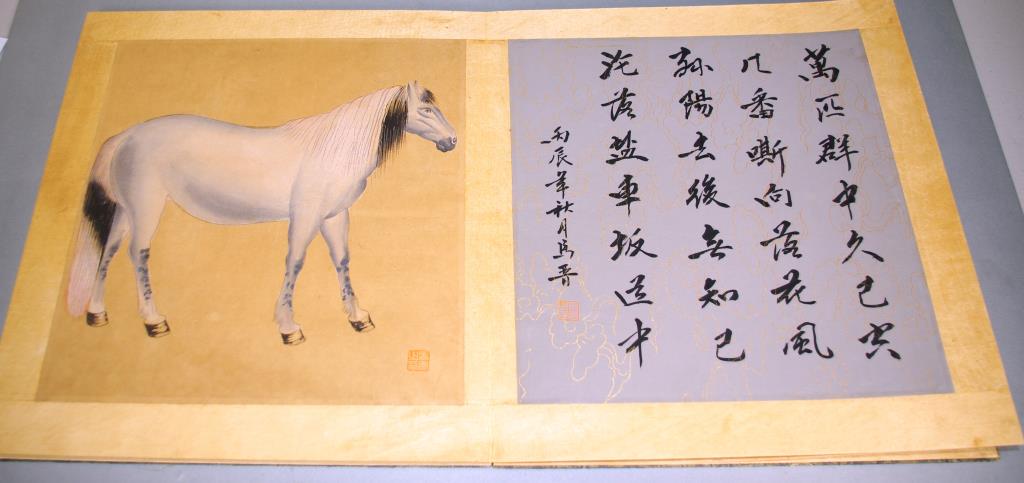 萬匹群中久已空
几番嘶向落花風
孫陽去後無知己
沦落盐車坂道中
丙辰年秋月馬晋